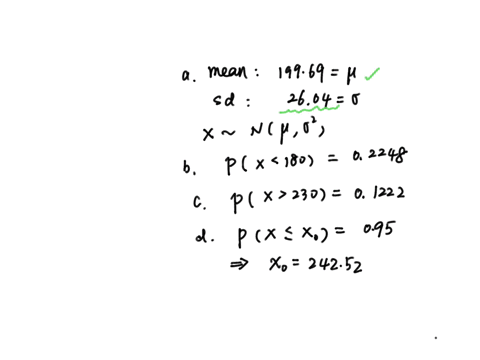 a. mean : 199.69 = μ ✓
sd : 26.04 = σ
X ~ N(μ, σ²)
b. P(X < 180) = 0.2248
c. P(X > 230) = 0.1222
d. P(X ≤ X₀) = 0.95
⇒ X₀ = 242.52